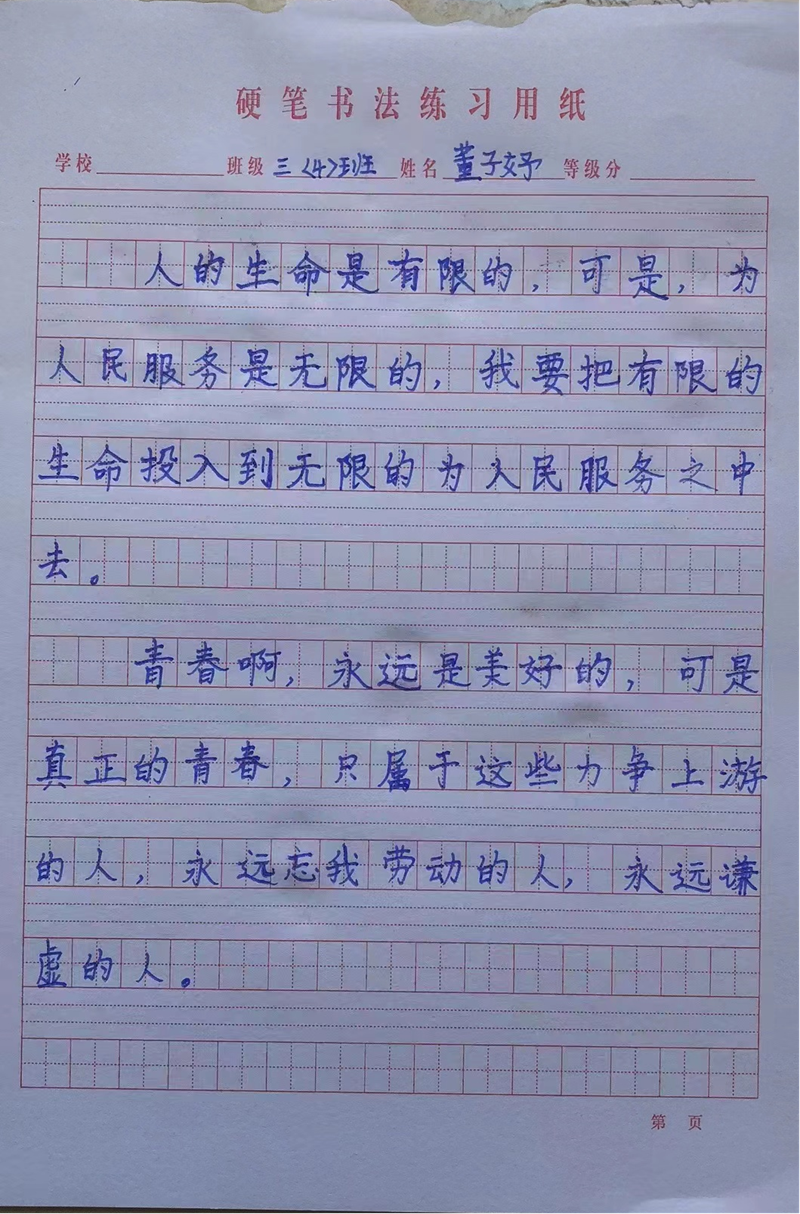 硬笔书法练习用纸
学校 班级 三〈4〉班 姓名 董子妤 等级分
人的生命是有限的，可是，为
人民服务是无限的，我要把有限的
生命投入到无限的为人民服务之中
去。
青春啊，永远是美好的，可是
真正的青春，只属于这些力争上游
的人，永远忘我劳动的人，永远谦
虚的人。
第 页